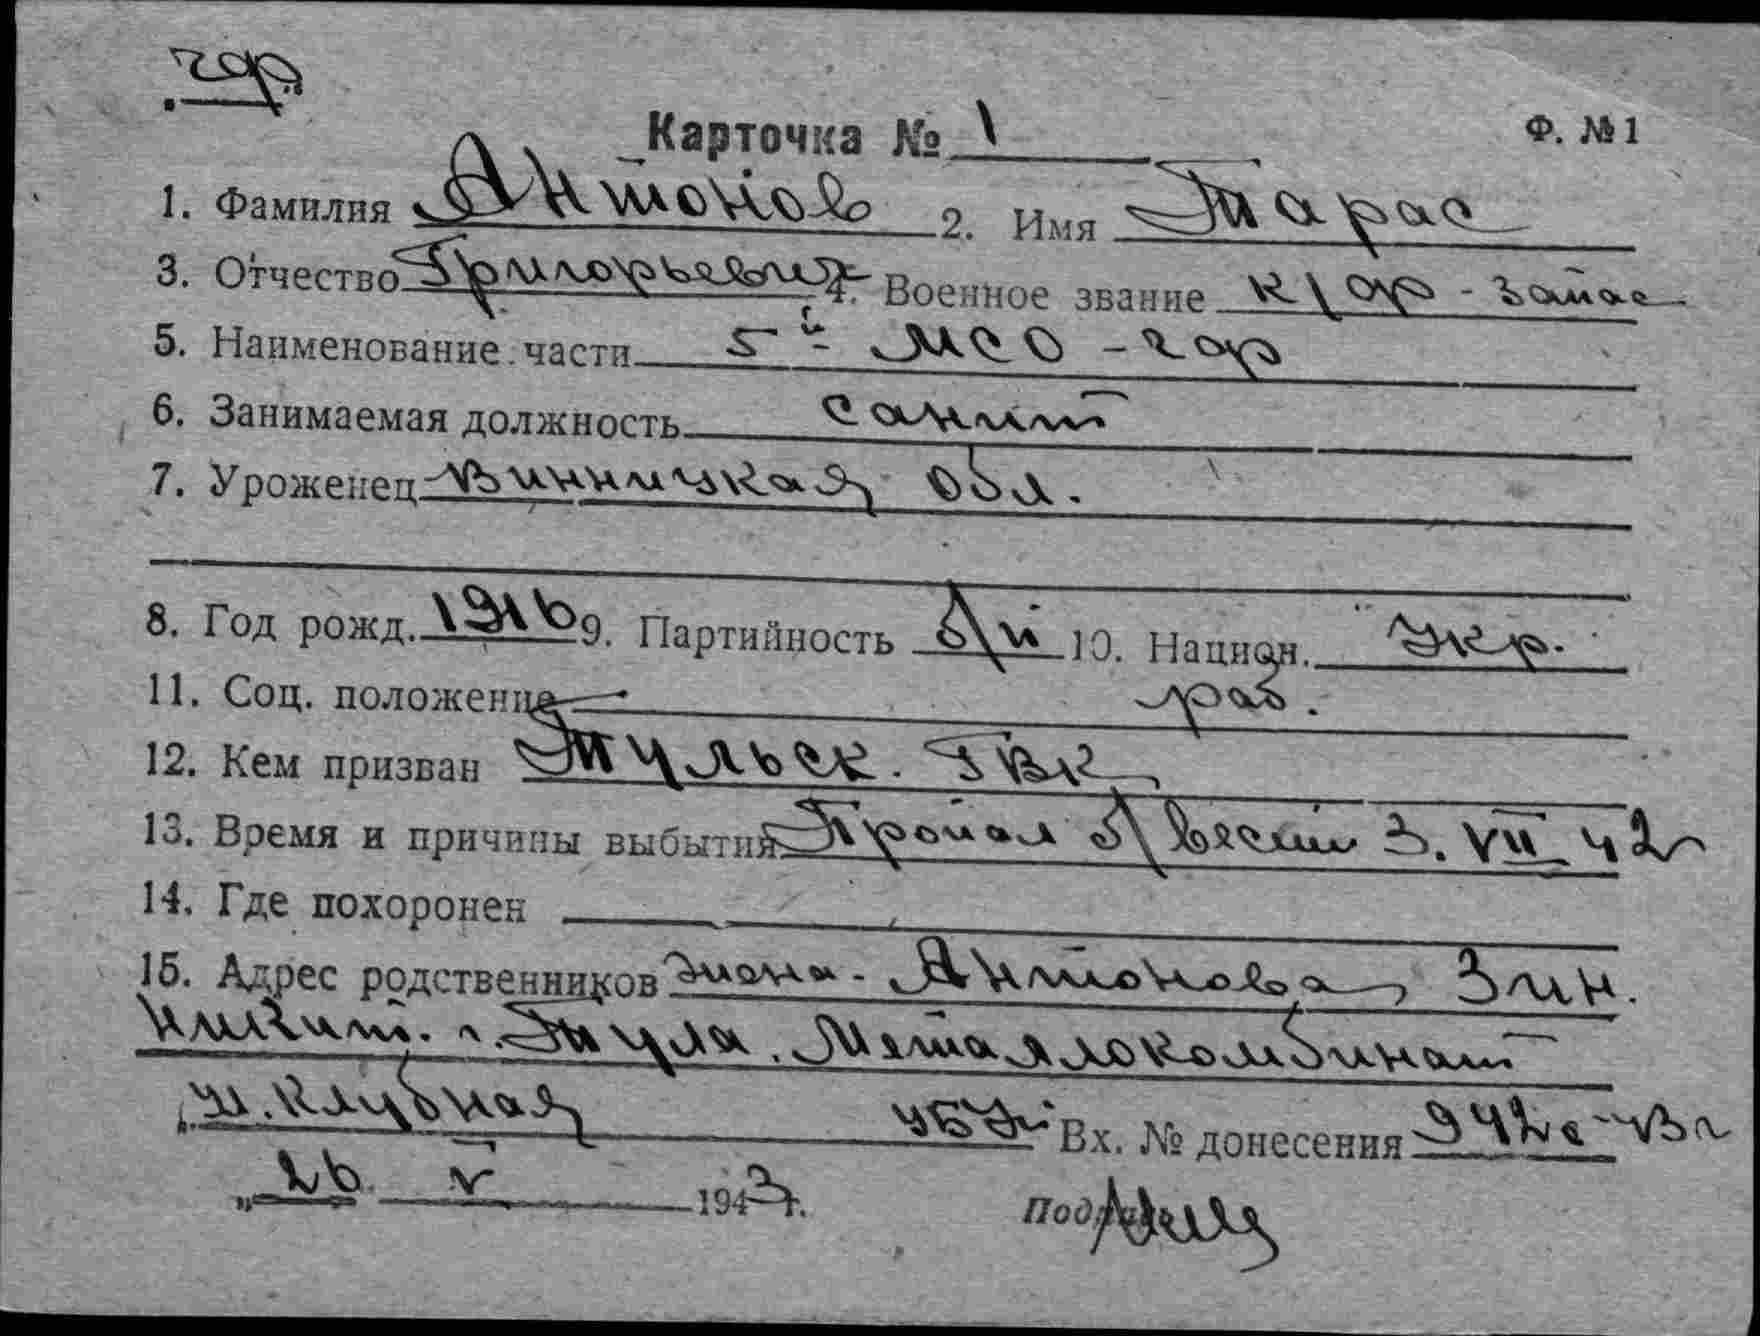 гар
Карточка № 1 Ф. №1
1. Фамилия Антонов 2. Имя Тарас
3. Отчество Григорьевич 4. Военное звание к/ар - запас
5. Наименование части 5й МСО - гар
6. Занимаемая должность санит
7. Уроженец Винницкая обл.
8. Год рожд. 1916 9. Партийность б/п 10. Национ. Укр.
11. Соц. положение раб.
12. Кем призван Тульск. ГВК
13. Время и причины выбытия Пропал б/вести 3. VII 42
14. Где похоронен
15. Адрес родственников жена - Антонова Зин.
Никит. г. Тула. Металлокомбинат
Клубная Вх. № донесения 942с-43г
"26 V 1943 г.
Подпись